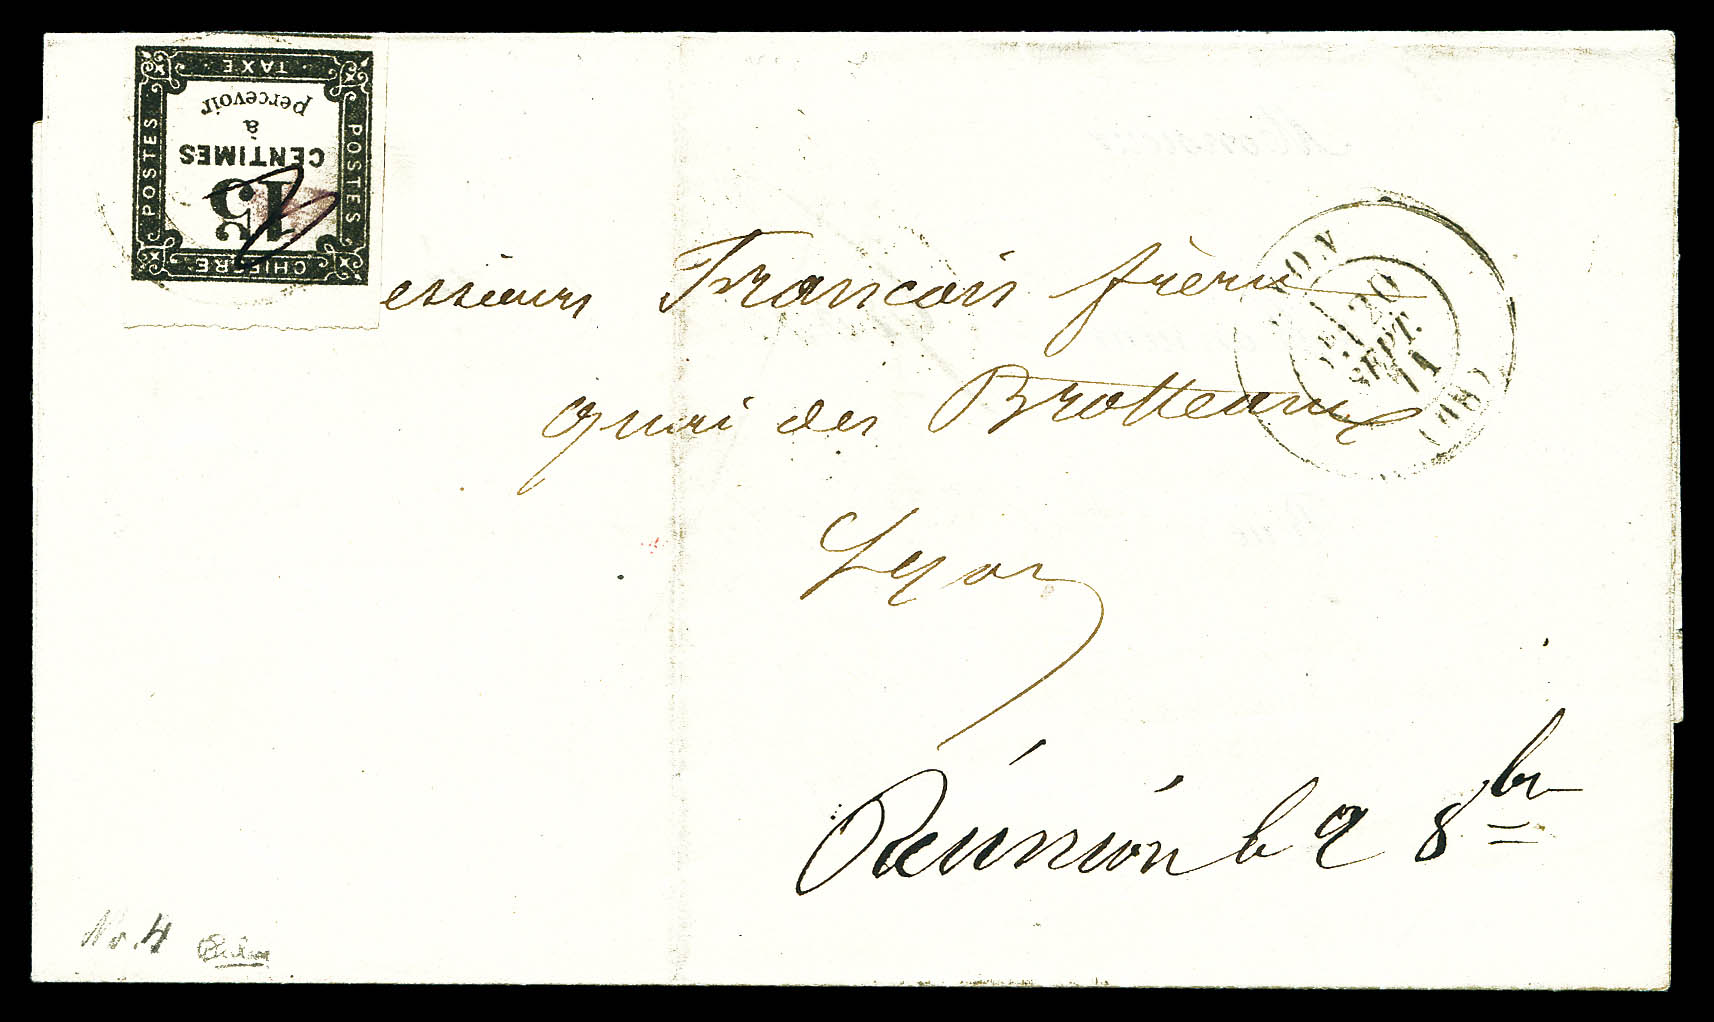 CHIFFRE
TAXE
POSTES
POSTES
15
CENTIMES
à
percevoir
LYON
20
SEPT.
71
(68)
essieurs François frères
quai des Brotteaux
Lyon
Réunion le 9 8bre
No. 4